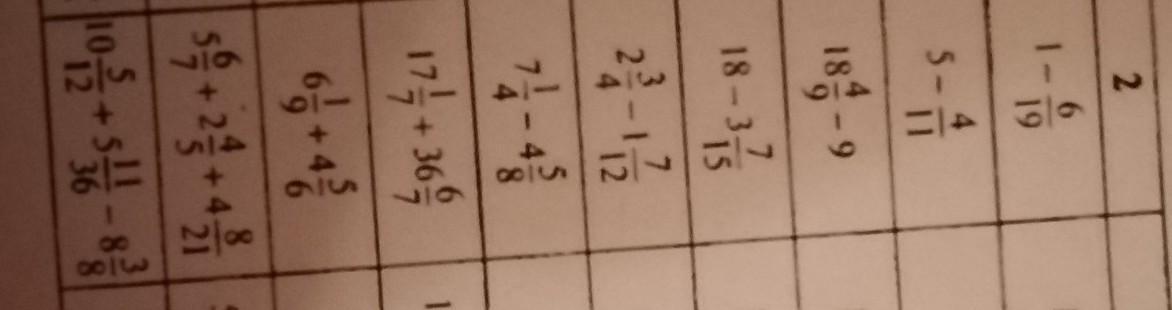 2
1 - 6/19
5 - 4/11
18 4/9 - 9
18 - 3 7/15
2 3/4 - 1 7/12
7 1/4 - 4 5/8
17 1/7 + 36 6/7
6 1/9 + 4 5/6
5 6/7 + 2 4/5 + 4 8/21
10 5/12 + 5 11/36 - 8 3/8